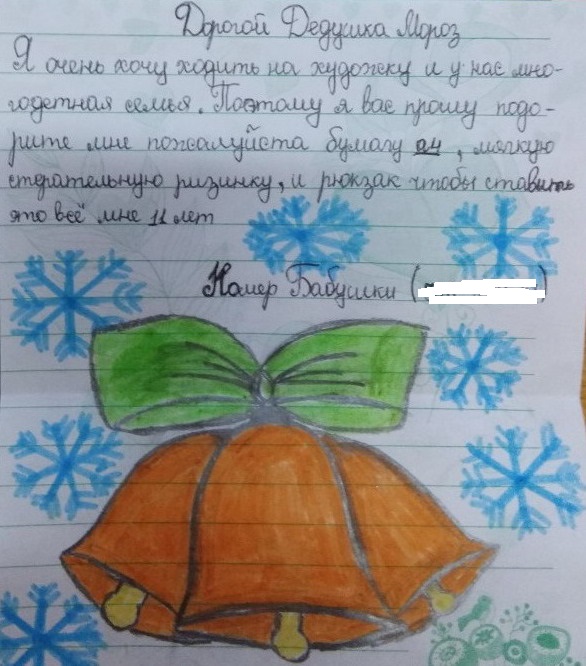 Дорогой Дедушка Мороз
Я очень хочу ходить на художку и у нас мно-
годетная семья. Поэтому я вас прошу подо-
рите мне пожалуйста бумагу а4, мягкую
стерательную ризинку, и рюкзак чтобы ставить
это всё мне 11 лет
Номер Бабушки ( )